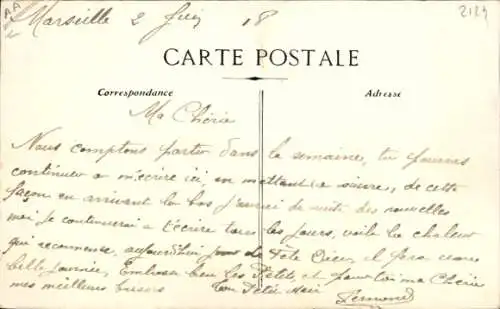 Marseille 2 Juin 18
2124
CARTE POSTALE
Correspondance
Adresse
Ma Chérie
Nous comptons partir dans la semaine, tu pourras
continuer a m'écrire ici, en mettant suivre, de cette
façon en arrivant la bas j'aurai de suite des nouvelles
moi je continuerai a t'écrire tous les jours, voila la chaleur
qui recommence, aujourd'hui jour de Fete Dieu, il fera
belle journée, Embrasse bien les Petits, et pour toi ma Chérie
mes meilleurs baisers Ton Petit Mari